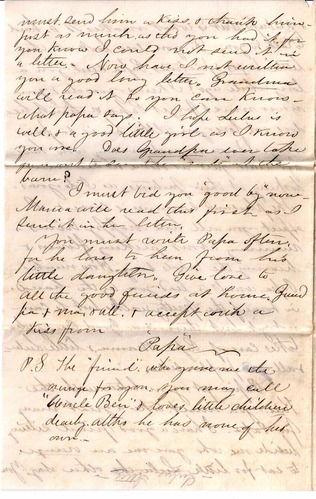 must send him a kiss, & thank him
just as much as tho you had it for
you know I could not send it in
a letter. Now have I not written
you a good long letter. Grandma
will read it so you can know
what papa says. I hope Lulu is
well & a good little girl as I know
you are. Does Grandpa ever take
you out to see the at the
barn?
I must bid you "good by" now
Mama will read this first as I
send it in her letter.
You must write Papa often,
for he loves to hear from his
little daughter. Give love to
all the good friends at home, Grand
pa & ma, & all. & accept with a
kiss from
Papa
P.S. The "friend" who gave me the
orange for you, you may call
"Uncle Ben" & loves little children
dearly altho he has none of his
own.